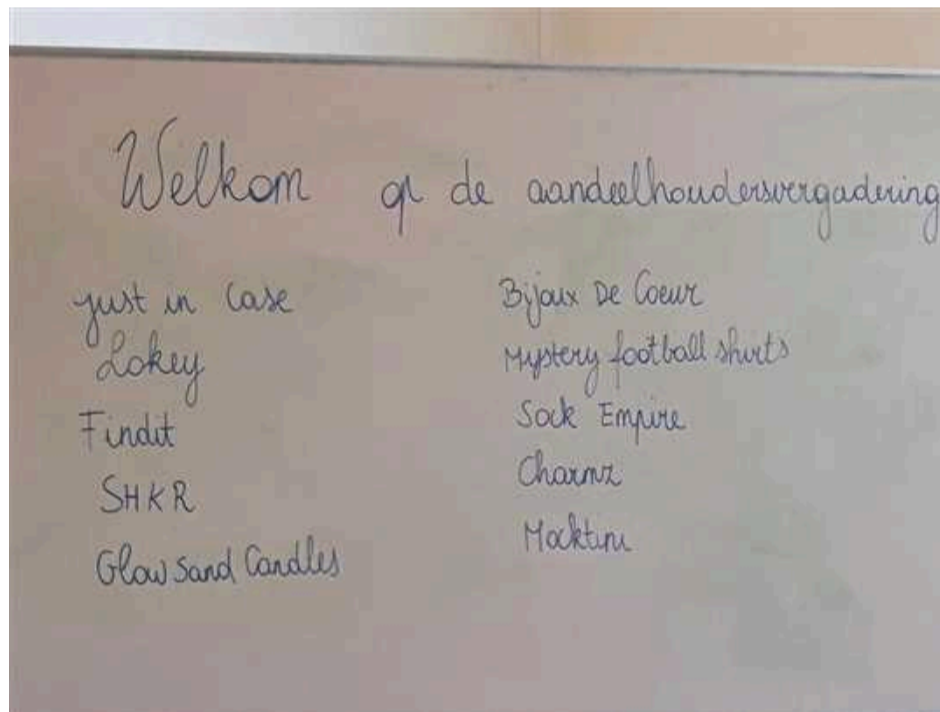 Welkom op de aandeelhoudersvergadering
just in Case
Lokey
Findit
SHKR
Glow Sand Candles
Bijoux De Coeur
Mystery football shirts
Sock Empire
Charmz
Mocktini